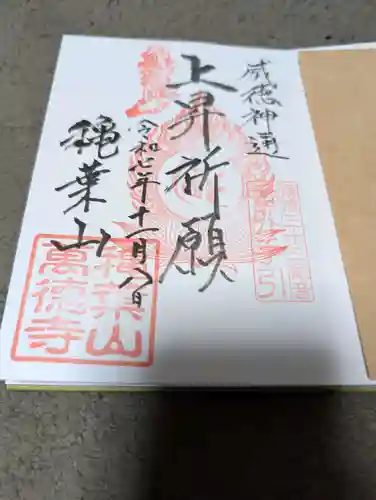 威徳神通
上昇祈願
令和七年十一月八日
穐葉山
穐葉山
萬徳寺